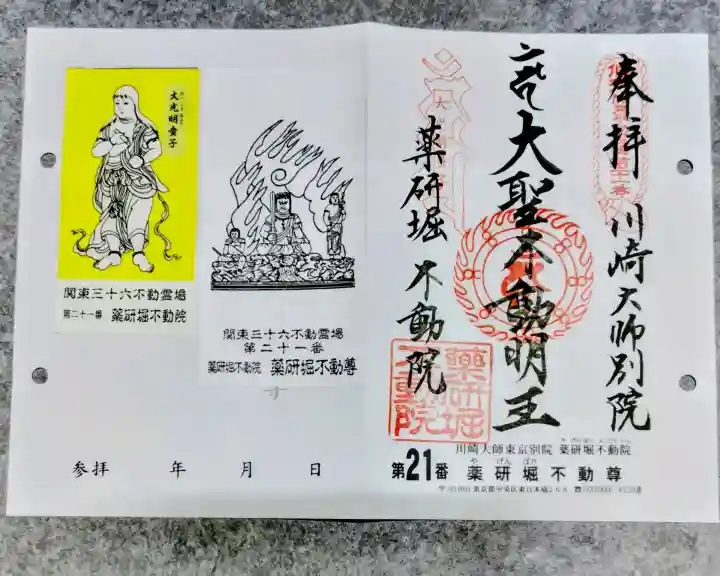 奉拝 川崎大師別院
大聖不動明王
薬研堀 不動院
薬研堀
不動院
川崎大師東京別院 薬研堀不動院
や げん ぼり
第21番 薬研堀不動尊
大光明童子
関東三十六不動霊場
第二十一番 薬研堀不動院
関東三十六不動霊場
第二十一番
薬研堀不動院 薬研堀不動尊
参拝 年 月 日